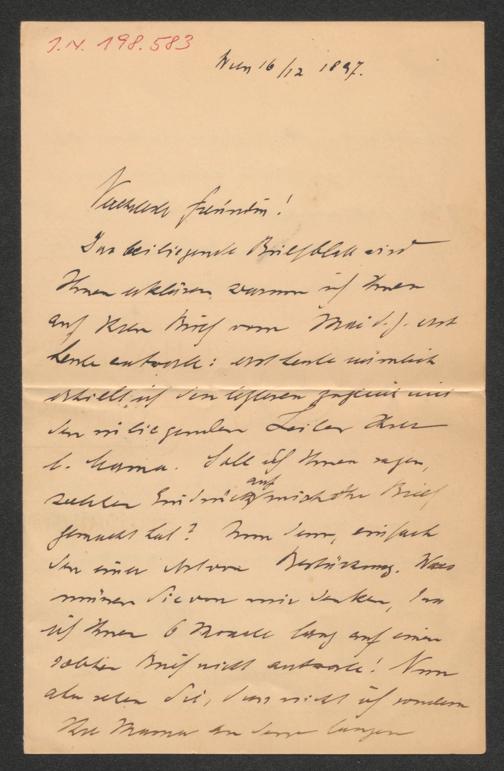 I.N. 198.583
Wien 16/12 1897.
Verehrte Freundin!
Das beiliegende Briefblatt wird
Ihnen erklären warum ich Ihnen
auf Ihren Brief vom Mai d. J. erst
heute antworte: erst heute nämlich
erhielt ich den letzteren zugleich mit
den inliegenden Zeilen Ihrer
l. Mama. Soll ich Ihnen sagen,
welchen Eindruck auf mich Ihr Brief
gemacht hat? Nun denn, einfach
den einer Art von Bestürzung. Was
müssen Sie von mir denken, da
ich Ihnen 6 Monate lang auf einen
solchen Brief nicht antworte! Nun
aber sehen Sie, dass nicht ich sondern
Ihre Mama an dem langen